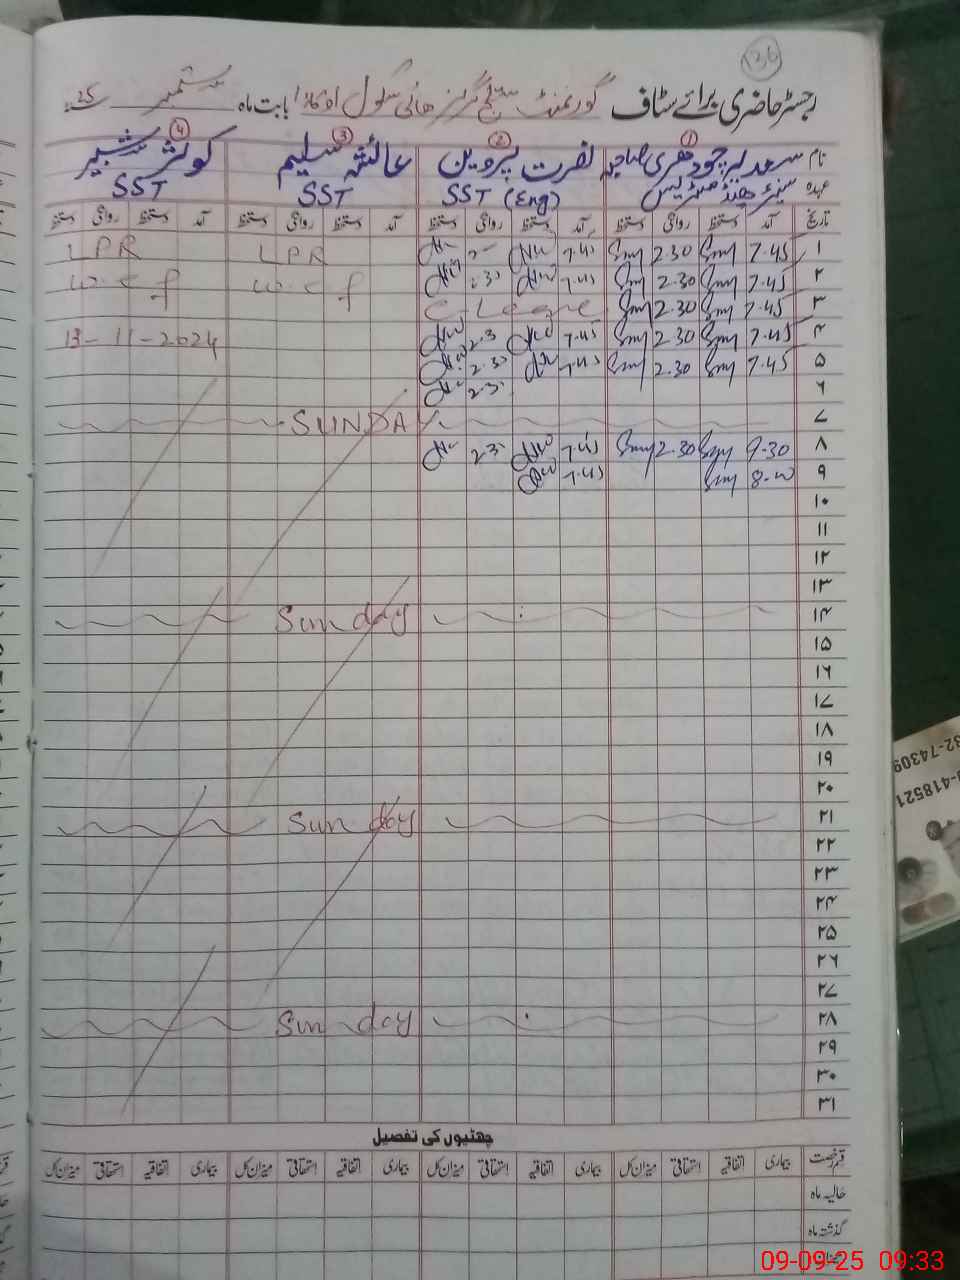 136
رجسٹر حاضری برائے سٹاف گورنمنٹ ستلج گرلز ھائی سکول اوکاڑا بابت ماہ ستمبر 25ء
نام سعدیہ چودھری صاحبہ ① نصرت پروین ② عائشہ سلیم ③ کوثر شبیر ④
عہدہ سینئر ھیڈ مسٹریس SST (Eng) SST SST
تاریخ آمد دستخط روانگی دستخط آمد دستخط روانگی دستخط آمد دستخط روانگی دستخط آمد دستخط روانگی دستخط
۱ 7.45 2.30 7.45 LPR LPR
۲ 7.45 2.30 7.45 :30 w.e.f w.e.f
۳ 7.45 2.30 C-Leave
۴ 7.45 2.30 7.45 2.3 13-11-2024
۵ 7.45 2.30 7.45 2.30
۶ 2.3
۷ SUNDAY
۸ 9.30 2.30 7.45 2.3
۹ 8.00 7.45
۱۰
۱۱
۱۲
۱۳
۱۴ Sunday
۱۵
۱۶
۱۷
۱۸
۱۹
۲۰
۲۱ Sunday
۲۲
۲۳
۲۴
۲۵
۲۶
۲۷
۲۸ Sunday
۲۹
۳۰
۳۱
چھٹیوں کی تفصیل
قسم رخصت بیماری اتفاقیہ استحقاقی میزان کل بیماری اتفاقیہ استحقاقی میزان کل بیماری اتفاقیہ استحقاقی میزان کل بیماری اتفاقیہ استحقاقی میزان کل
حالیہ ماہ
گذشتہ ماہ
32-74309
418521
09-09-25 09:33